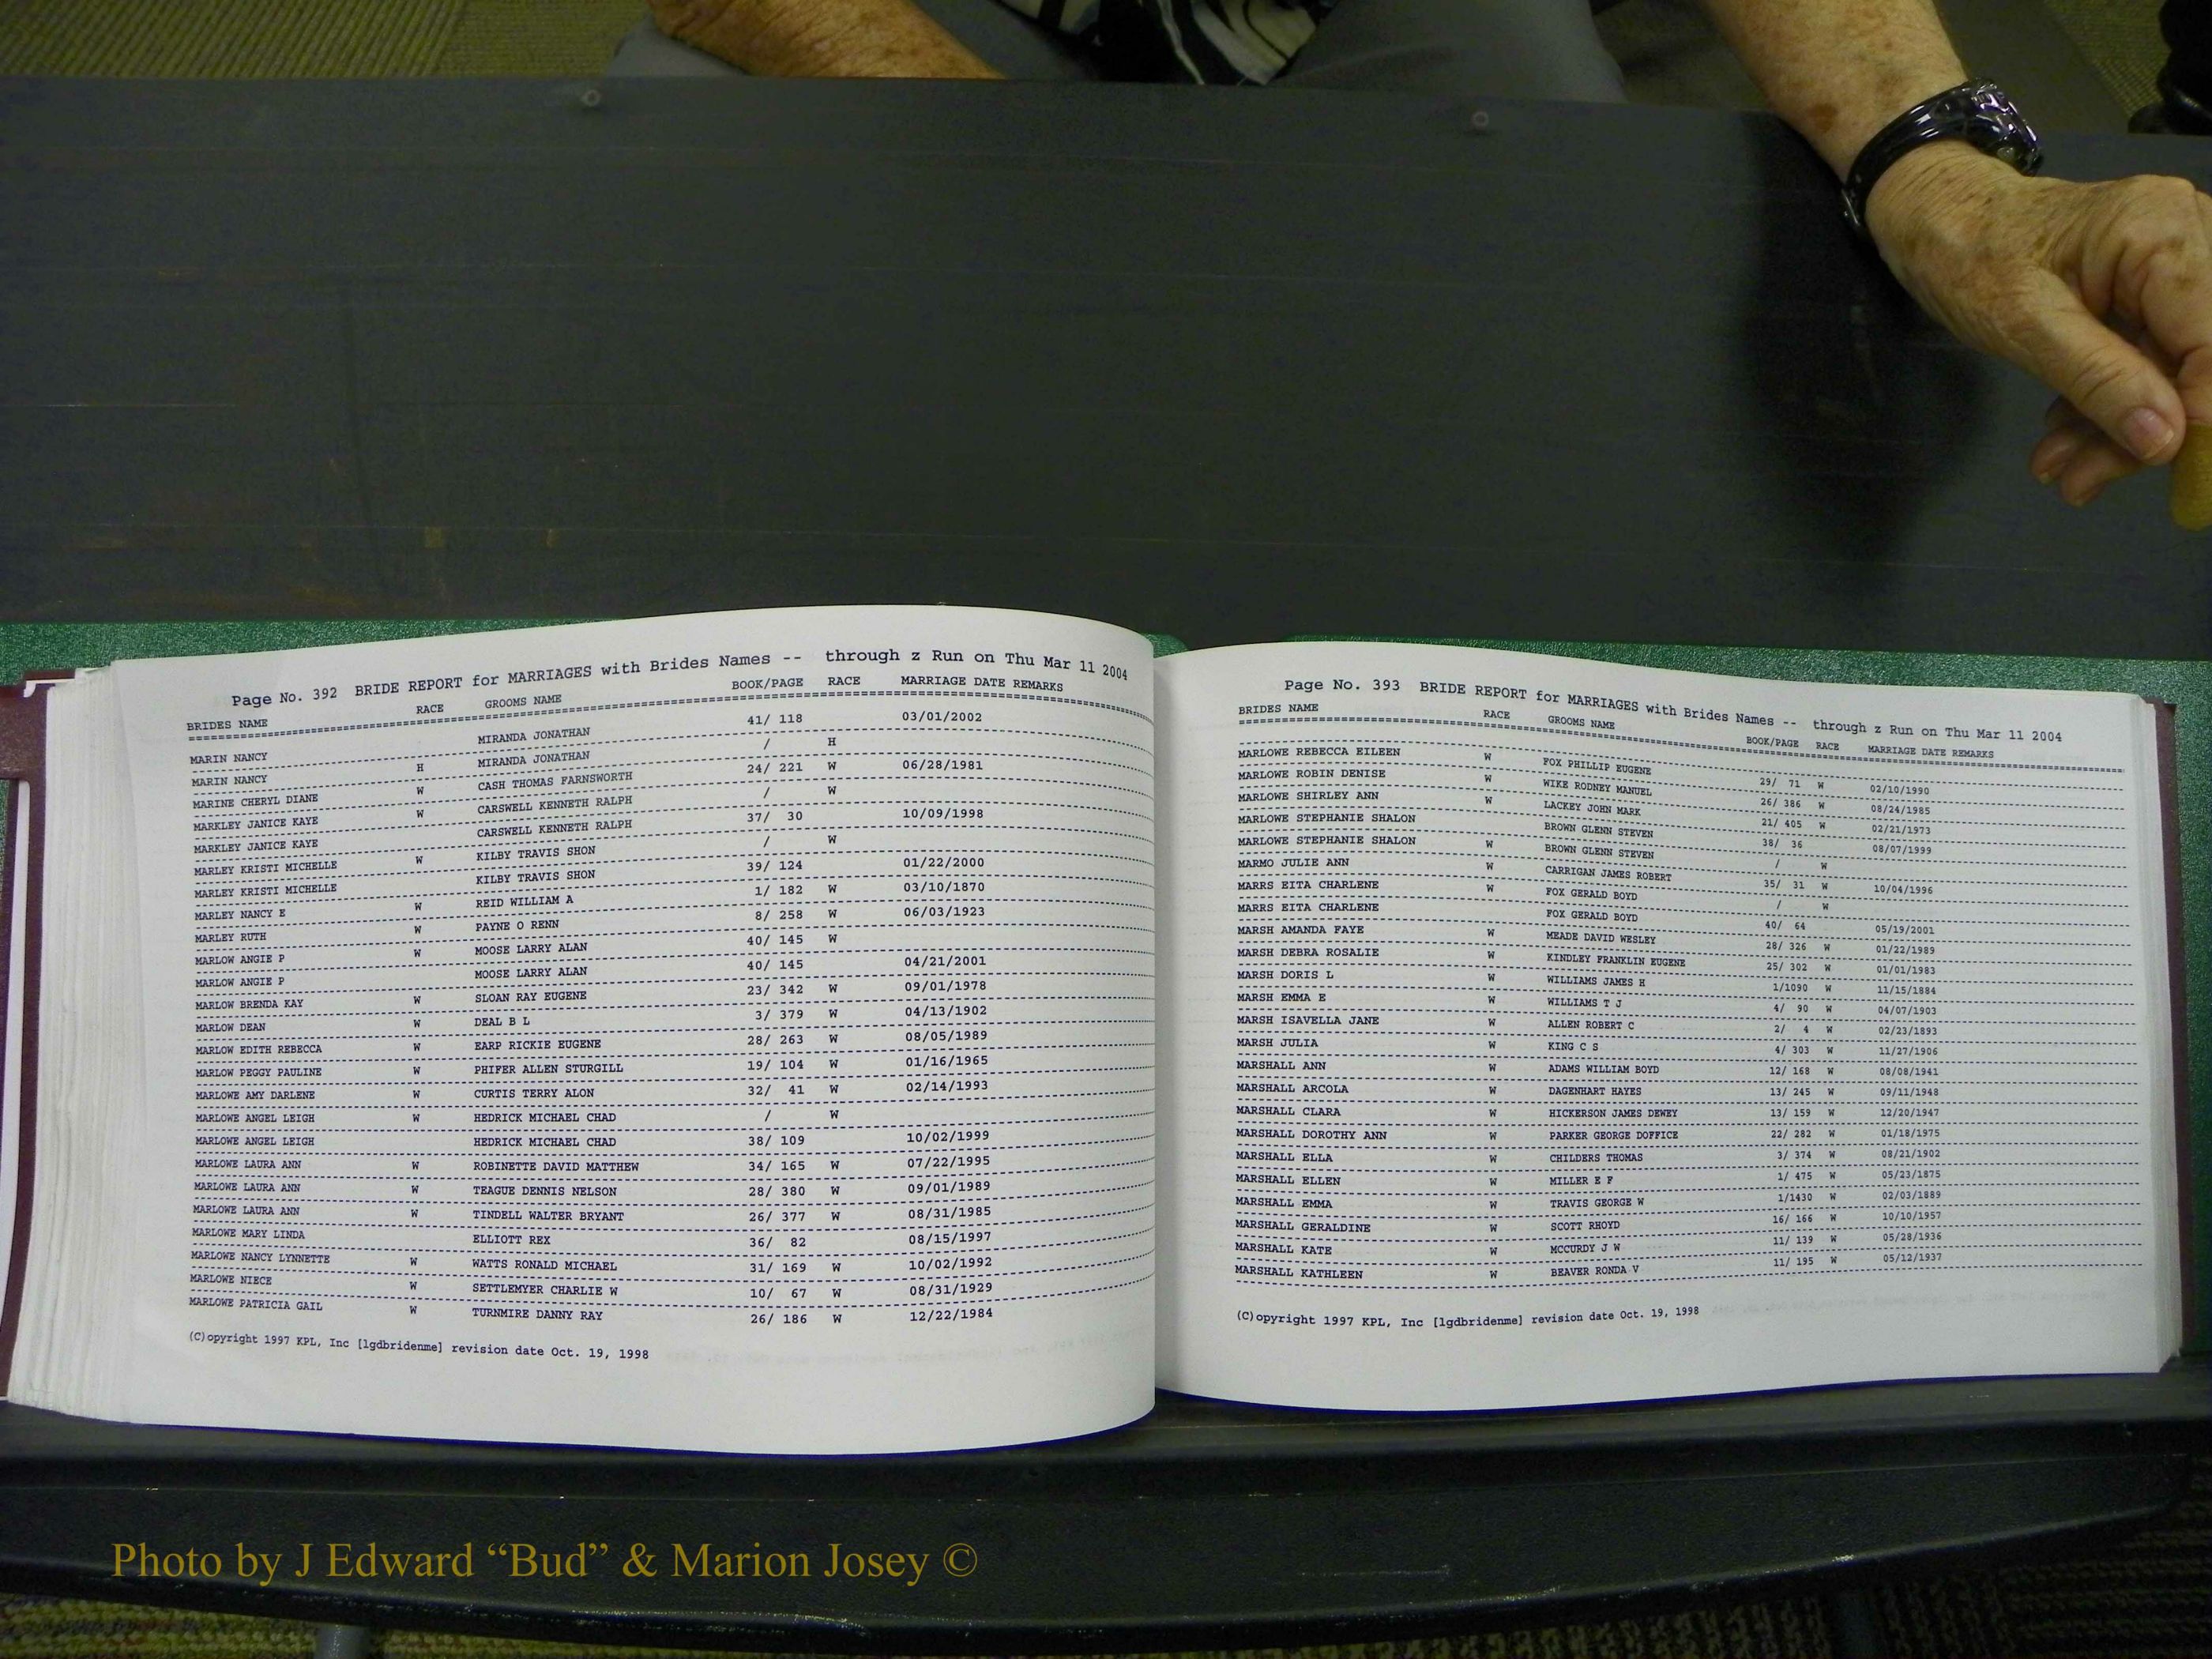 Page No. 392 BRIDE REPORT for MARRIAGES with Brides Names -- through z Run on Thu Mar 11 2004
BRIDES NAME RACE GROOMS NAME BOOK/PAGE RACE MARRIAGE DATE REMARKS
MARIN NANCY MIRANDA JONATHAN 41/ 118 03/01/2002
MARIN NANCY H MIRANDA JONATHAN / H
MARINE CHERYL DIANE W CASH THOMAS FARNSWORTH 24/ 221 W 06/28/1981
MARKLEY JANICE KAYE W CARSWELL KENNETH RALPH / W
MARKLEY JANICE KAYE CARSWELL KENNETH RALPH 37/ 30 10/09/1998
MARLEY KRISTI MICHELLE W KILBY TRAVIS SHON / W
MARLEY KRISTI MICHELLE KILBY TRAVIS SHON 39/ 124 01/22/2000
MARLEY NANCY E W REID WILLIAM A 1/ 182 W 03/10/1870
MARLEY RUTH W PAYNE O RENN 8/ 258 W 06/03/1923
MARLOW ANGIE P W MOOSE LARRY ALAN 40/ 145 W
MARLOW ANGIE P MOOSE LARRY ALAN 40/ 145 04/21/2001
MARLOW BRENDA KAY W SLOAN RAY EUGENE 23/ 342 W 09/01/1978
MARLOW DEAN W DEAL B L 3/ 379 W 04/13/1902
MARLOW EDITH REBECCA W EARP RICKIE EUGENE 28/ 263 W 08/05/1989
MARLOW PEGGY PAULINE W PHIFER ALLEN STURGILL 19/ 104 W 01/16/1965
MARLOWE AMY DARLENE W CURTIS TERRY ALON 32/ 41 W 02/14/1993
MARLOWE ANGEL LEIGH W HEDRICK MICHAEL CHAD / W
MARLOWE ANGEL LEIGH HEDRICK MICHAEL CHAD 38/ 109 10/02/1999
MARLOWE LAURA ANN W ROBINETTE DAVID MATTHEW 34/ 165 W 07/22/1995
MARLOWE LAURA ANN W TEAGUE DENNIS NELSON 28/ 380 W 09/01/1989
MARLOWE LAURA ANN W TINDELL WALTER BRYANT 26/ 377 W 08/31/1985
MARLOWE MARY LINDA ELLIOTT REX 36/ 82 08/15/1997
MARLOWE NANCY LYNNETTE W WATTS RONALD MICHAEL 31/ 169 W 10/02/1992
MARLOWE NIECE W SETTLEMYER CHARLIE W 10/ 67 W 08/31/1929
MARLOWE PATRICIA GAIL W TURNMIRE DANNY RAY 26/ 186 W 12/22/1984
(C)opyright 1997 KPL, Inc [lgdbridenme] revision date Oct. 19, 1998
Page No. 393 BRIDE REPORT for MARRIAGES with Brides Names -- through z Run on Thu Mar 11 2004
BRIDES NAME RACE GROOMS NAME BOOK/PAGE RACE MARRIAGE DATE REMARKS
MARLOWE REBECCA EILEEN W FOX PHILLIP EUGENE 29/ 71 W 02/10/1990
MARLOWE ROBIN DENISE W WIKE RODNEY MANUEL 26/ 386 W 08/24/1985
MARLOWE SHIRLEY ANN W LACKEY JOHN MARK 21/ 405 W 02/21/1973
MARLOWE STEPHANIE SHALON BROWN GLENN STEVEN 38/ 36 08/07/1999
MARLOWE STEPHANIE SHALON W BROWN GLENN STEVEN / W
MARMO JULIE ANN W CARRIGAN JAMES ROBERT 35/ 31 W 10/04/1996
MARRS EITA CHARLENE W FOX GERALD BOYD / W
MARRS EITA CHARLENE FOX GERALD BOYD 40/ 64 05/19/2001
MARSH AMANDA FAYE W MEADE DAVID WESLEY 28/ 326 W 01/22/1989
MARSH DEBRA ROSALIE W KINDLEY FRANKLIN EUGENE 25/ 302 W 01/01/1983
MARSH DORIS L W WILLIAMS JAMES H 1/1090 W 11/15/1884
MARSH EMMA E W WILLIAMS T J 4/ 90 W 04/07/1903
MARSH ISAVELLA JANE W ALLEN ROBERT C 2/ 4 W 02/23/1893
MARSH JULIA W KING C S 4/ 303 W 11/27/1906
MARSHALL ANN W ADAMS WILLIAM BOYD 12/ 168 W 08/08/1941
MARSHALL ARCOLA W DAGENHART HAYES 13/ 245 W 09/11/1948
MARSHALL CLARA W HICKERSON JAMES DEWEY 13/ 159 W 12/20/1947
MARSHALL DOROTHY ANN W PARKER GEORGE DOFFICE 22/ 282 W 01/18/1975
MARSHALL ELLA W CHILDERS THOMAS 3/ 374 W 08/21/1902
MARSHALL ELLEN W MILLER E F 1/ 475 W 05/23/1875
MARSHALL EMMA W TRAVIS GEORGE W 1/1430 W 02/03/1889
MARSHALL GERALDINE W SCOTT RHOYD 16/ 166 W 10/10/1957
MARSHALL KATE W MCCURDY J W 11/ 139 W 05/28/1936
MARSHALL KATHLEEN W BEAVER RONDA V 11/ 195 W 05/12/1937
(C)opyright 1997 KPL, Inc [lgdbridenme] revision date Oct. 19, 1998
Photo by J Edward “Bud” & Marion Josey ©